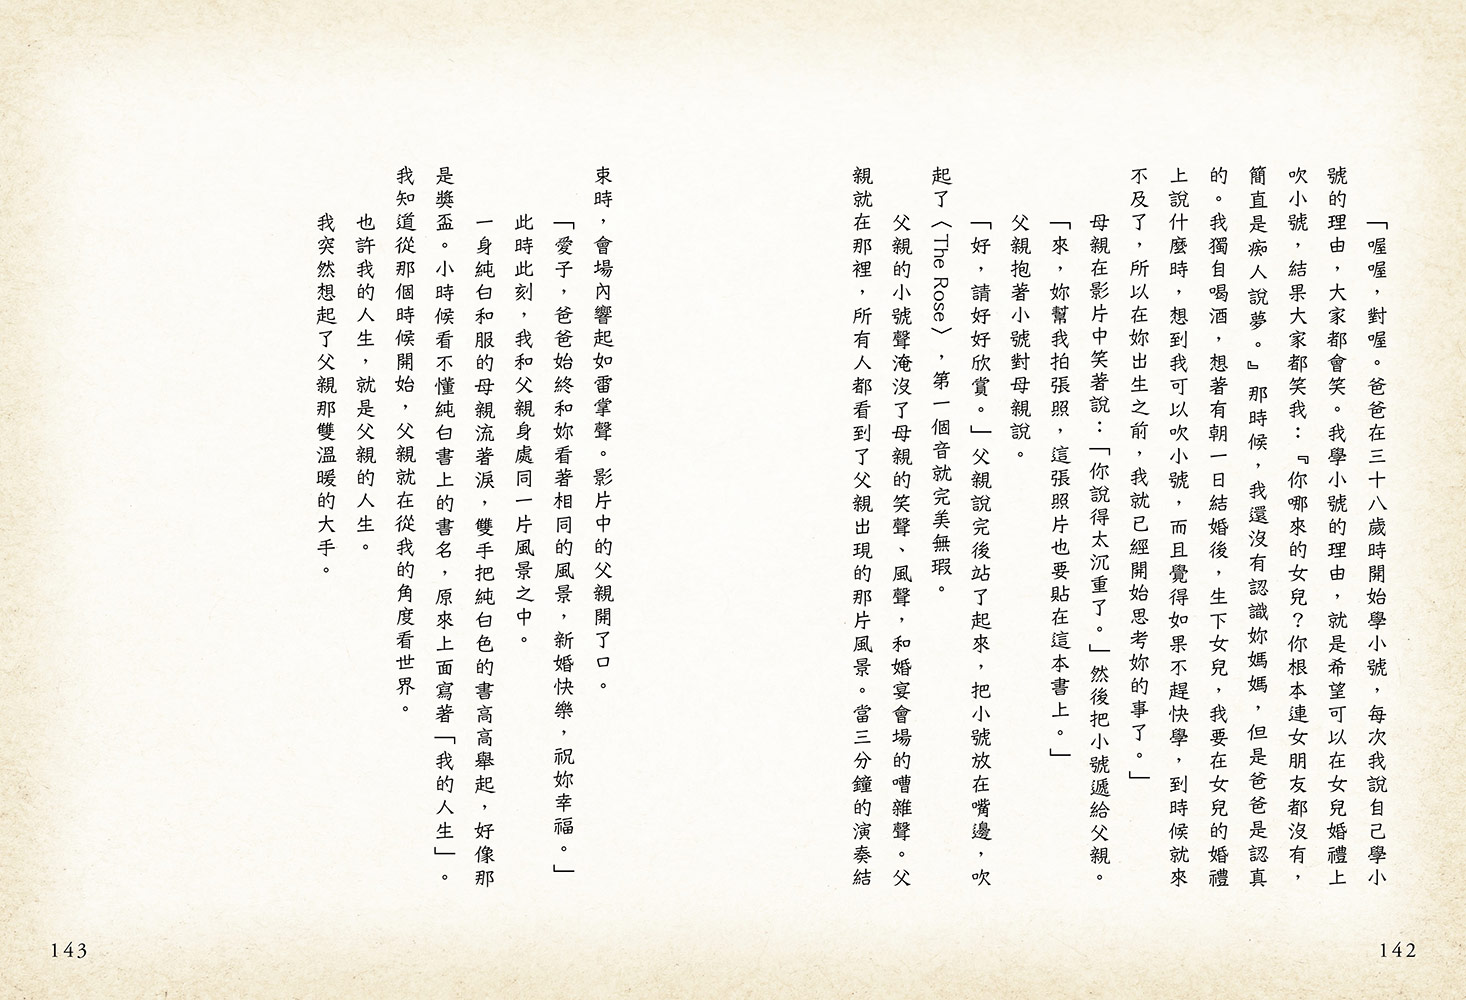 「喔喔，對喔。爸爸在三十八歲時開始學小號，每次我說自己學小
號的理由，大家都會笑。我學小號的理由，就是希望可以在女兒婚禮上
吹小號，結果大家都笑我：『你哪來的女兒？你根本連女朋友都沒有，
簡直是痴人說夢。』那時候，我還沒有認識妳媽媽，但是爸爸是認真
的。我獨自喝酒，想著有朝一日結婚後，生下女兒，我要在女兒的婚禮
上說什麼時，想到我可以吹小號，而且覺得如果不趕快學，到時候就來
不及了，所以在妳出生之前，我就已經開始思考妳的事了。」
母親在影片中笑著說：「你說得太沉重了。」然後把小號遞給父親。
「來，妳幫我拍張照，這張照片也要貼在這本書上。」
父親抱著小號對母親說。
「好，請好好欣賞。」父親說完後站了起來，把小號放在嘴邊，吹
起了〈The Rose〉，第一個音就完美無瑕。
父親的小號聲淹沒了母親的笑聲、風聲，和婚宴會場的嘈雜聲。父
親就在那裡，所有人都看到了父親出現的那片風景。當三分鐘的演奏結
142
束時，會場內響起如雷掌聲。影片中的父親開了口。
「愛子，爸爸始終和妳看著相同的風景，新婚快樂，祝妳幸福。」
此時此刻，我和父親身處同一片風景之中。
一身純白和服的母親流著淚，雙手把純白色的書高高舉起，好像那
是獎盃。小時候看不懂純白書上的書名，原來上面寫著「我的人生」。
我知道從那個時候開始，父親就在從我的角度看世界。
也許我的人生，就是父親的人生。
我突然想起了父親那雙溫暖的大手。
143